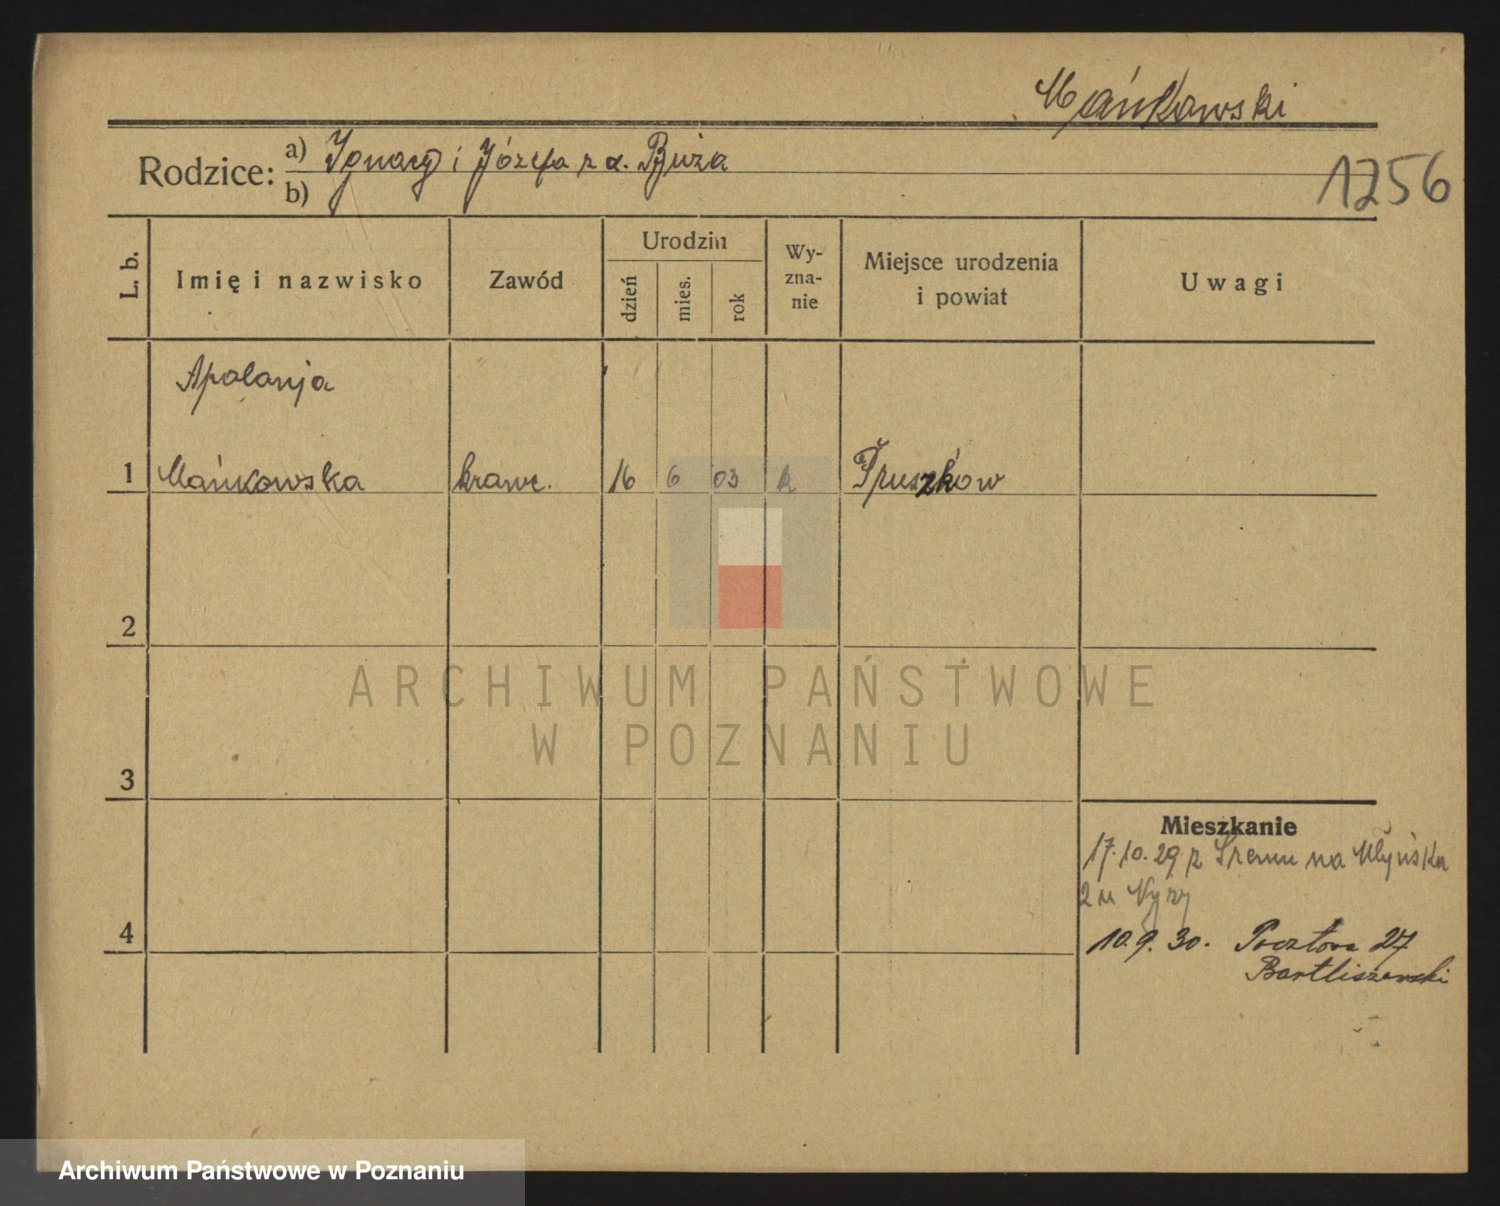 Mańkowski
Rodzice: a) Ignacy i Józefa z d. Buża
b)
1256
L. b. Imię i nazwisko Zawód Urodzin dzień mies. rok Wyznanie Miejsce urodzenia i powiat Uwagi
Apolonja
1 Mańkowska krawc. 16 6 03 k Pruszków
2
3
4
Mieszkanie
17.10.29 z Śremu na Młyńska
2 u
10.9.30. Pocztowa 27
Bartliszewski
ARCHIWUM PAŃSTWOWE
W POZNANIU
Archiwum Państwowe w Poznaniu